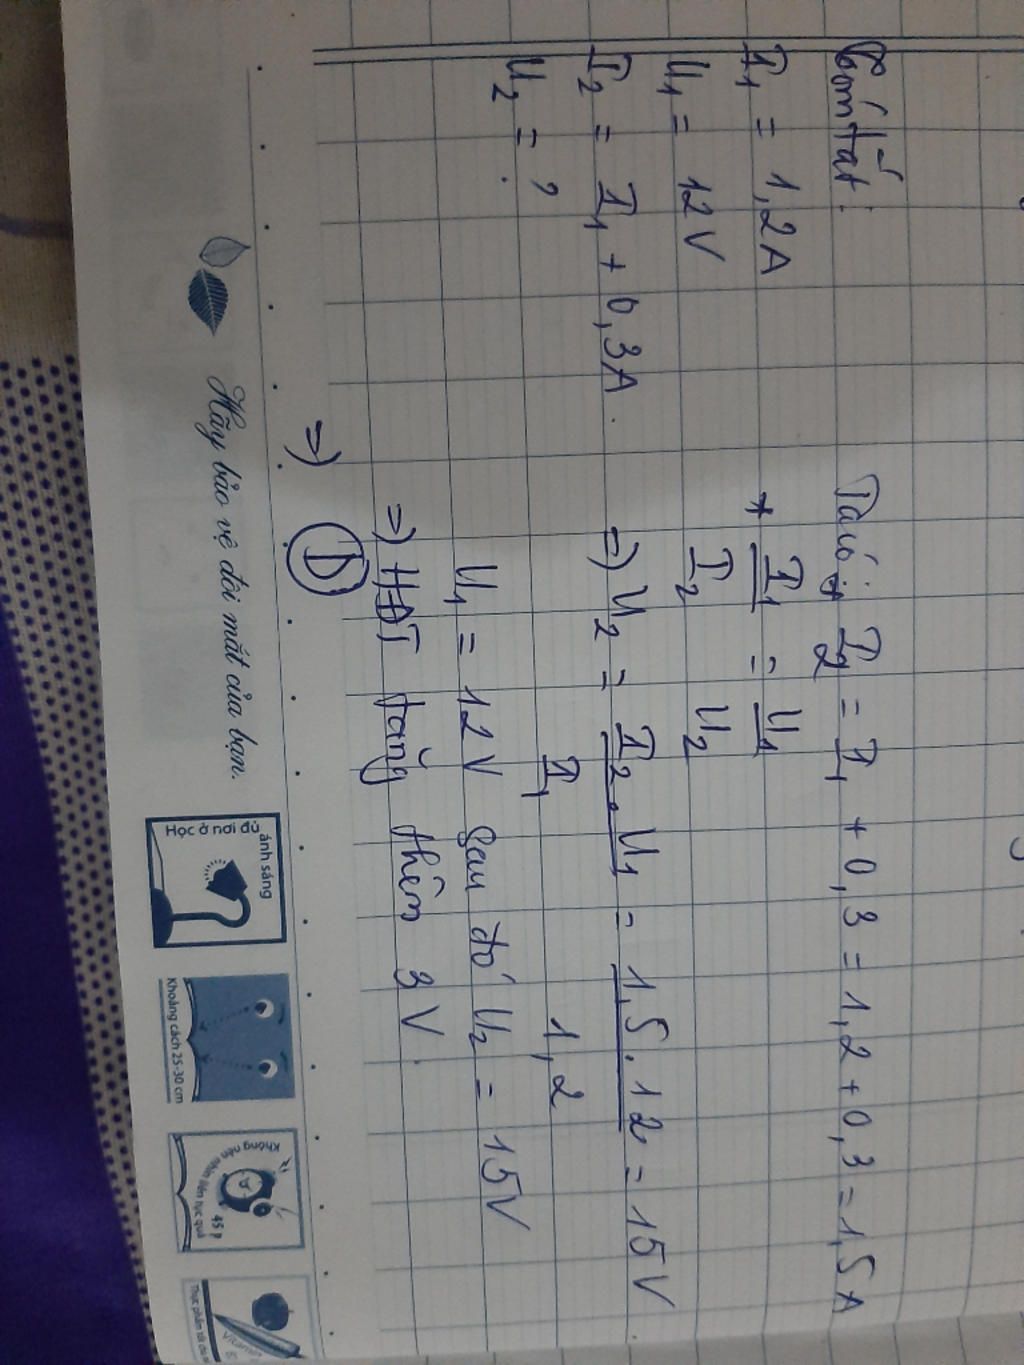 Tóm tắt:
I1 = 1,2A
U1 = 12V
I2 = I1 + 0,3A.
U2 = ?
Ta có: I2 = I1 + 0,3 = 1,2 + 0,3 = 1,5A
* I1/I2 = U1/U2
=> U2 = I2.U1/I1 = 1,5.12/1,2 = 15V
U1 = 12V sau đó U2 = 15V
=> HĐT tăng thêm 3V.
=> D
Hãy bảo vệ đôi mắt của bạn.
Học ở nơi đủ ánh sáng
Khoảng cách 25-30 cm
Không nên nhìn liên tục quá 45p
Vitamin